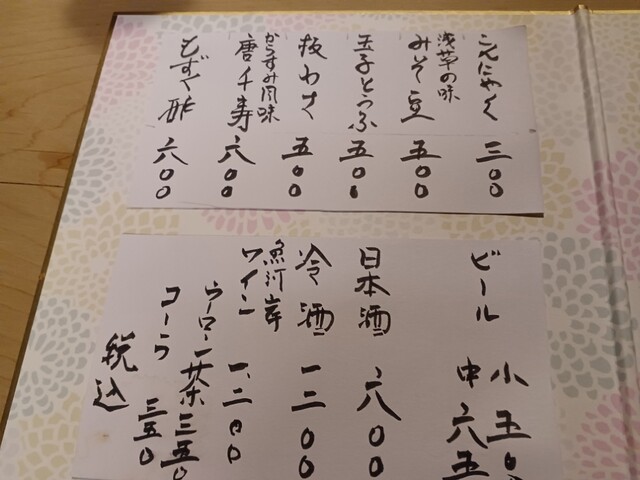 こんにゃく 三〇〇
浅草の味
みそ豆 五〇〇
玉子とうふ 五〇〇
板わさ 五〇〇
からすみ風味
唐千寿 六〇〇
もずく酢 六〇〇
ビール 小 五〇
中 六五
日本酒 六〇〇
冷酒 一二〇〇
魚河岸
ワイン 一、二〇〇
ウーロン茶 三五〇
コーラ 三五〇
税込